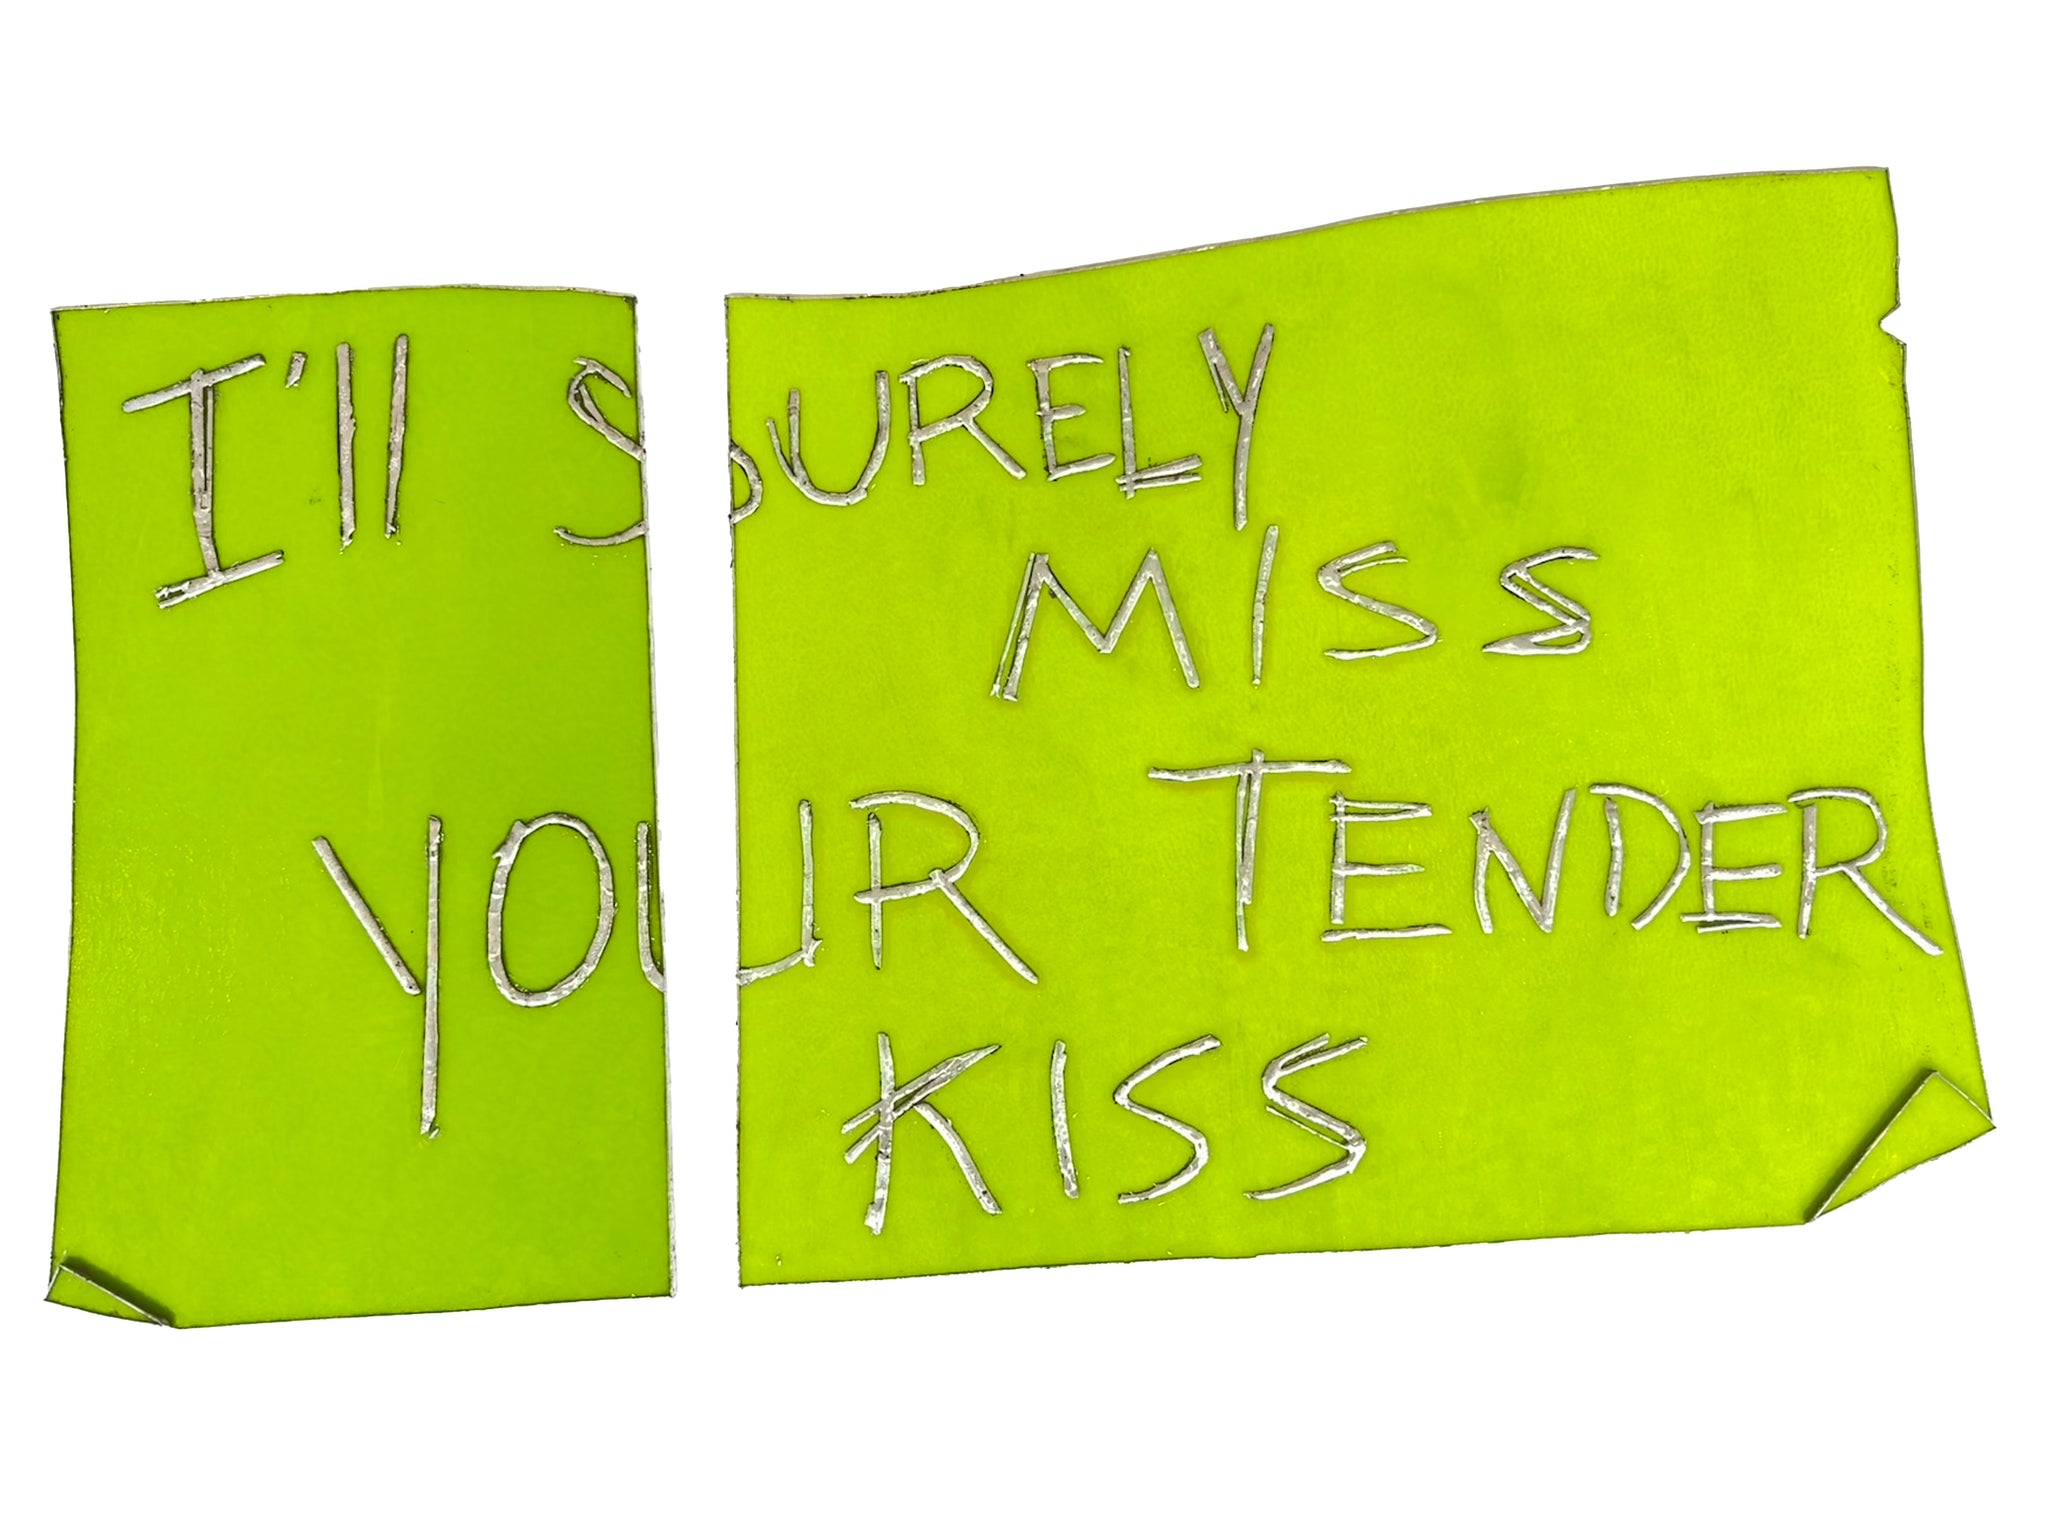 I'll SURELY
MISS
YOUR TENDER
KISS